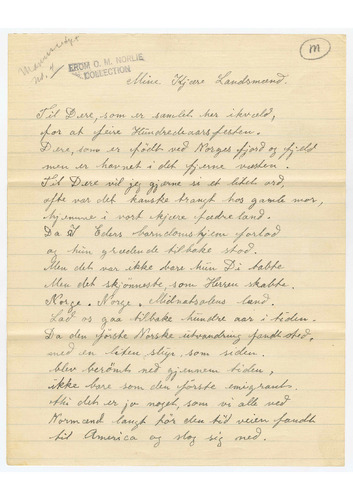 Manuscript
No. 4
FROM O. M. NORLIE
COLLECTION
M
Mine Kjære Landsmænd.
Til Dere, som er samlet her ikvæld,
for at feire Hundredeaarsfesten.
Dere, som er født ved Norges fjord og fjeld
men er havnet i det fjerne vesten.
Til Dere vil jeg gjerne si et litet ord,
ofte var det kanske trangt hos gamle mor,
hjemme i vort kjære fædreland.
Da I Eders barndomshjem forlod
og hun grædende tilbake stod.
Men det var ikke bare hun Di tabte
Men det skjønneste, som Herren skabte.
Norge, Norge, Midnatsolens land.
Lad os gaa tilbake hundre aar i tiden.
Da den første Norske utvandring fandt sted,
med en liten slup, som siden
blev berømt ned gjennem tiden,
ikke bare som den første emigrant.
Thi det er jo noget, som vi alle ved
Normænd langt før den tid veien fandt
til America og slog sig ned.